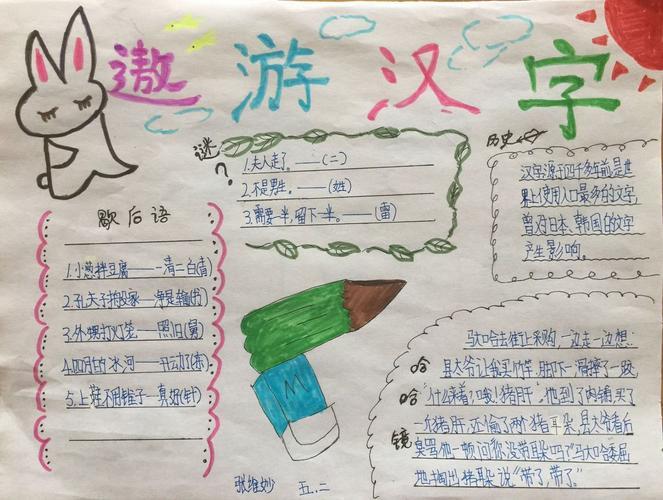 遨游汉字
谜
?
1.夫人走了。——(二)
2.不是男生。——(姓)
3.需要一半,留下一半。——(雷)
历史
汉字源于四千多年前,是世
界上使用人口最多的文字,
曾对日本、韩国的文字
产生影响。
歇后语
1.小葱拌豆腐——清二白(青)
2.孔夫子搬家——净是输(书)
3.外甥打灯笼——照旧(舅)
4.四月的冰河——开动了(冻)
5.上鞋不用锥子—真好(针)
M
哈哈镜
马大哈去集让采购,一边走一边想:
县太爷让我买竹竿,脚下一滑摔了一跤,
"什么来着?哦!猪肝",他到了肉铺买了
一个猪肝,还偷了两个猪耳朵,县太爷看后
臭骂他一顿问你没带耳朵吗?"马大哈委屈
地掏出猪耳朵说"带了,带了。"
张维妙 五.二